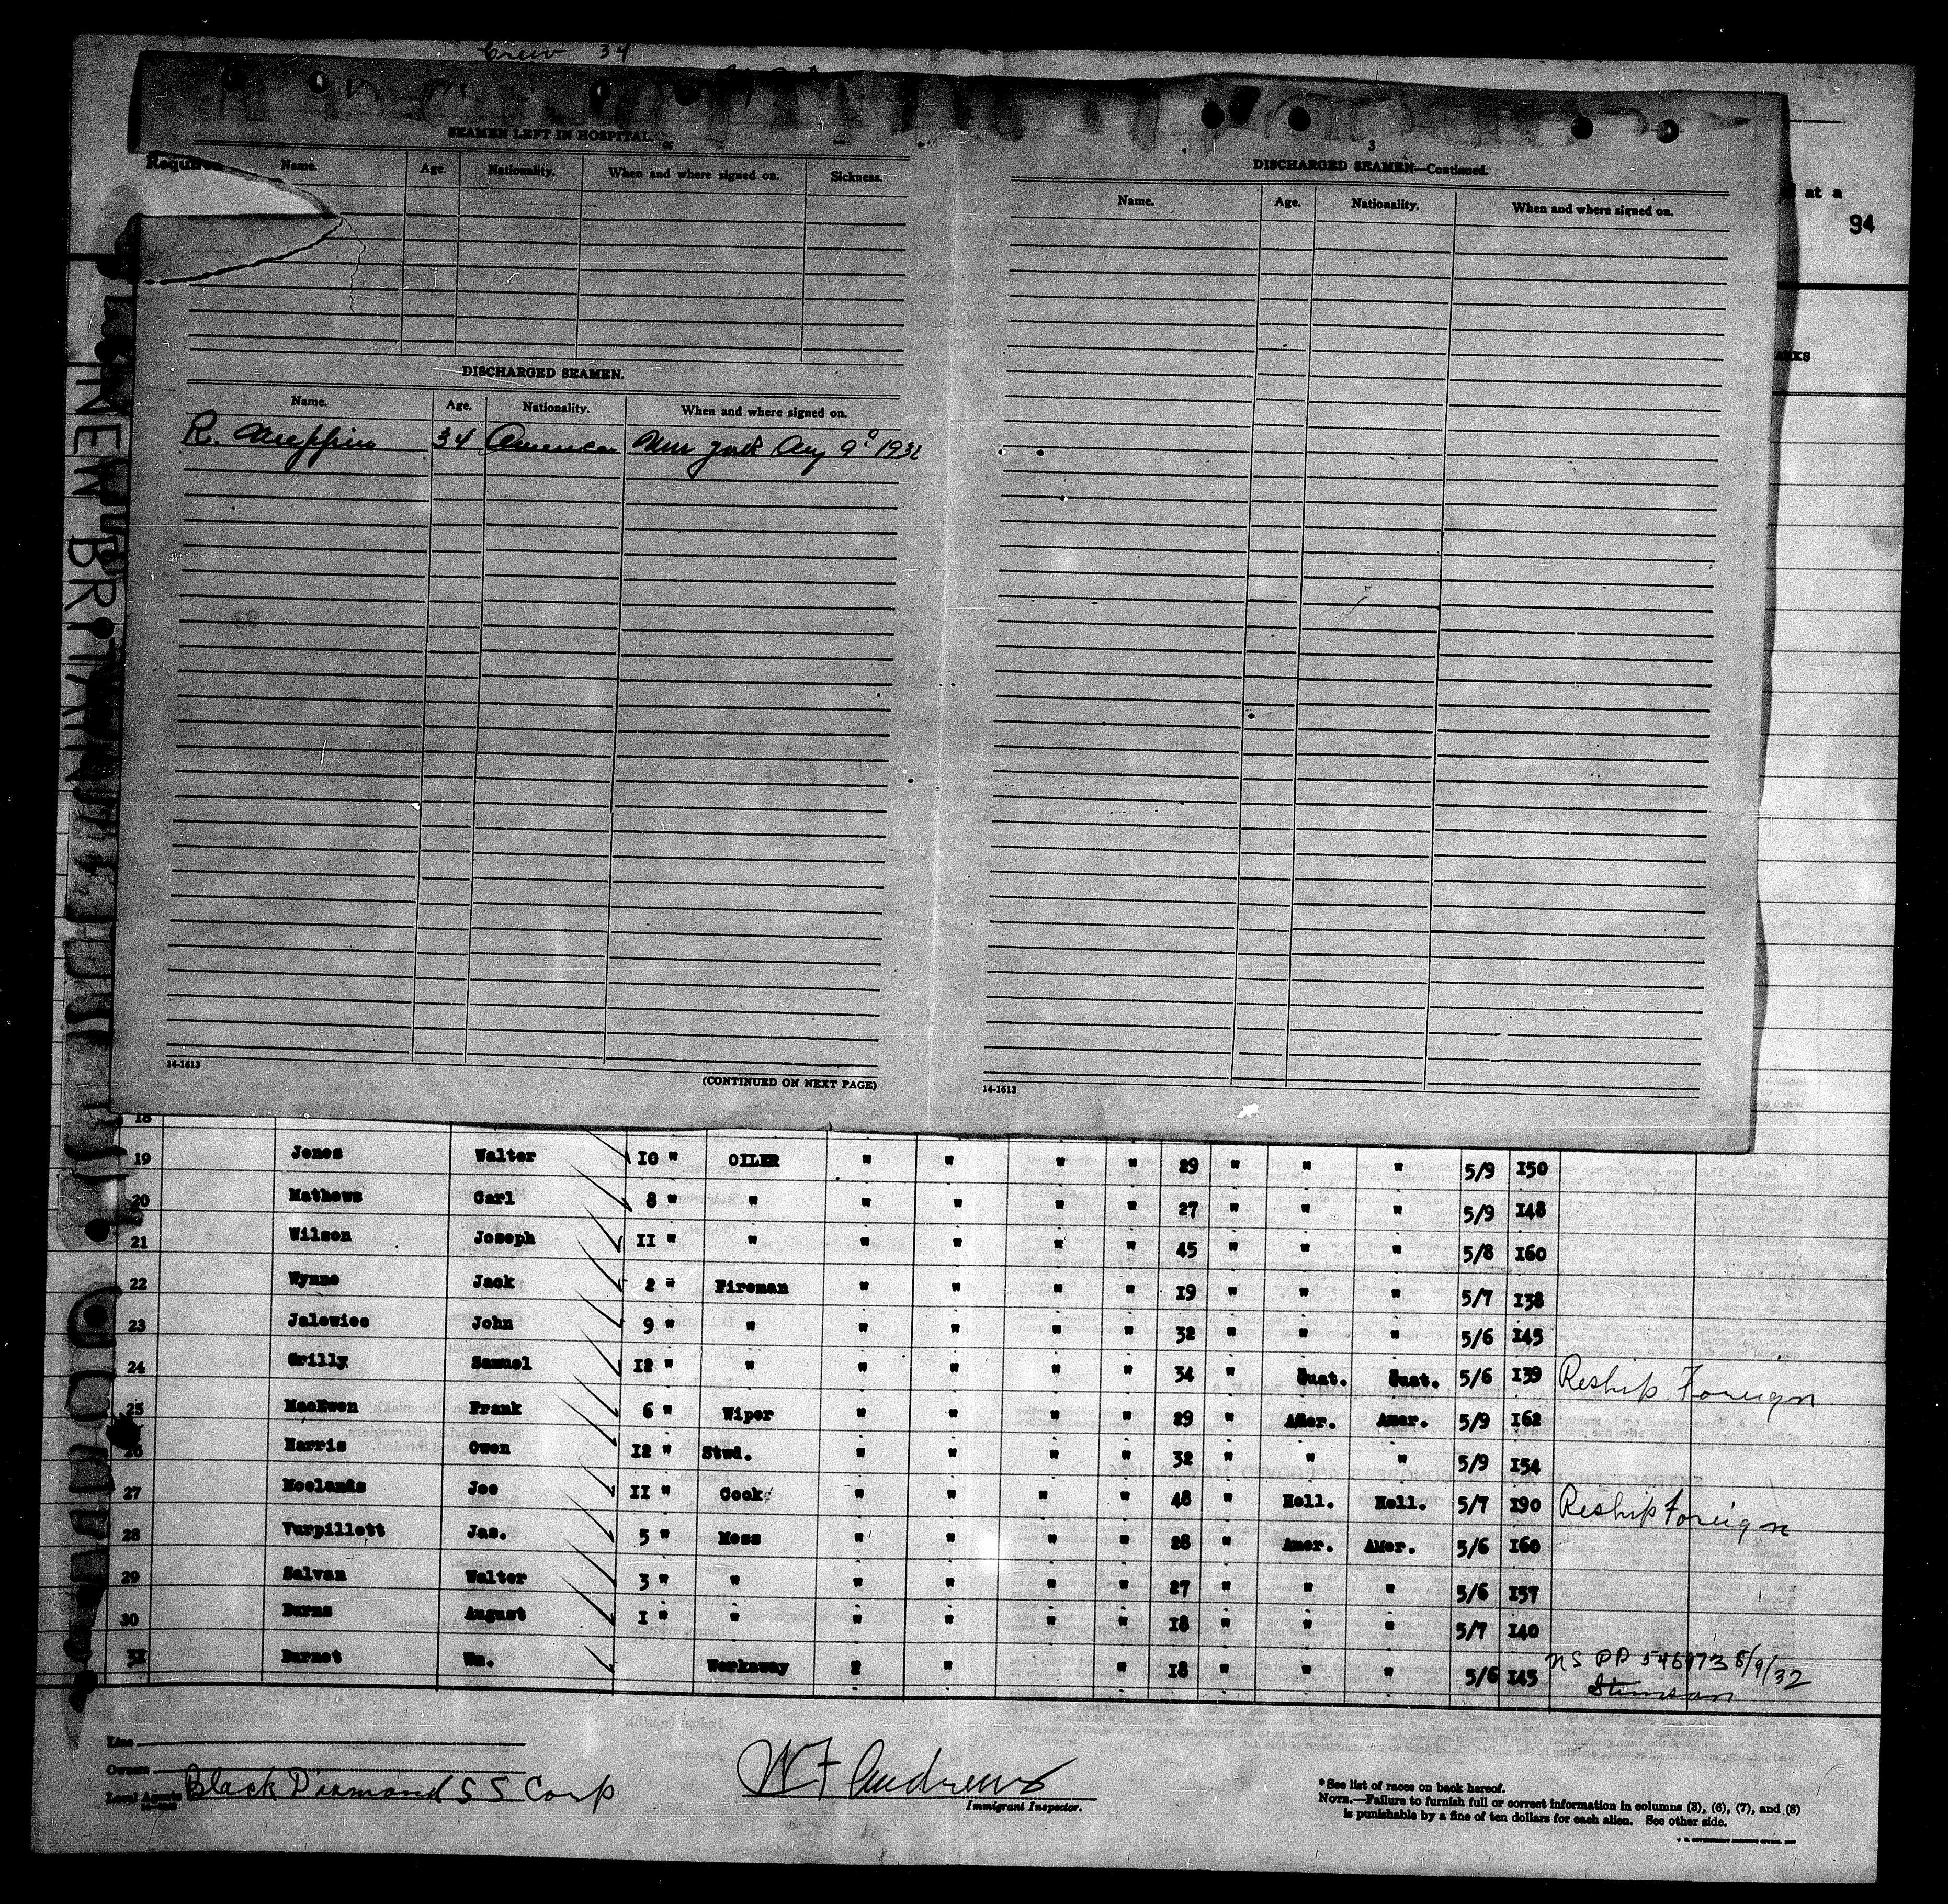 Crew 34
SEAMEN LEFT IN HOSPITAL.
Name. Age. Nationality. When and where signed on. Sickness.
DISCHARGED SEAMEN.
Name. Age. Nationality. When and where signed on.
R. 34 America New York Aug 9 1932
14-1613
(CONTINUED ON NEXT PAGE)
3
DISCHARGED SEAMEN—Continued.
Name. Age. Nationality. When and where signed on.
14-1613
at a
94
NEW BRITAIN
18
19 Jones Walter 10 " OILER " " " " 29 " " " 5/9 150
20 Mathews Carl 8 " " " " " " 27 " " " 5/9 148
21 Wilson Joseph 11 " " " " " " 45 " " " 5/8 160
22 Wynne Jack 2 " Fireman " " " " 19 " " " 5/7 138
23 Jalowiec John 9 " " " " " " 32 " " " 5/6 145
24 Grilly Samuel 12 " " " " " " 34 " Guat. Guat. 5/6 139 Reship Foreign
25 MacEwen Frank 6 " Wiper " " " " 29 " Amer. Amer. 5/9 162
26 Harris Owen 12 " Stwd. " " " " 32 " " " 5/9 154
27 Moelands Joe 11 " Cook " " " " 48 " Holl. Holl. 5/7 190 Reship Foreign
28 Vurpillott Jas. 5 " Mess " " " " 28 " Amer. Amer. 5/6 160
29 Salvan Walter 3 " " " " " " 27 " " " 5/6 157
30 Burns August 1 " " " " " " 18 " " " 5/7 140
31 Burnet Wm. Workaway " " " 18 " " " 5/6 145 NS PP 546973 8/9/32
Stimson
Line
Owners
Local Agents Black Diamond S S Corp
W F Andrews
Immigrant Inspector.
*See list of races on back hereof.
NOTE.—Failure to furnish full or correct information in columns (3), (6), (7), and (8)
is punishable by a fine of ten dollars for each alien. See other side.